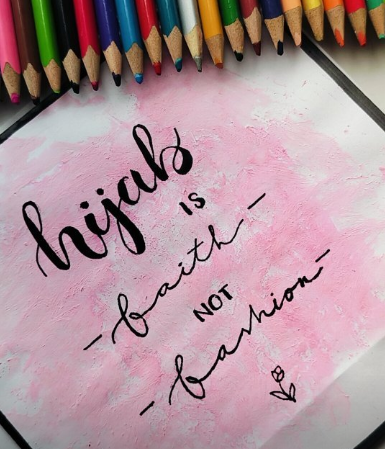 hijab
IS
- faith -
NOT
- fashion -